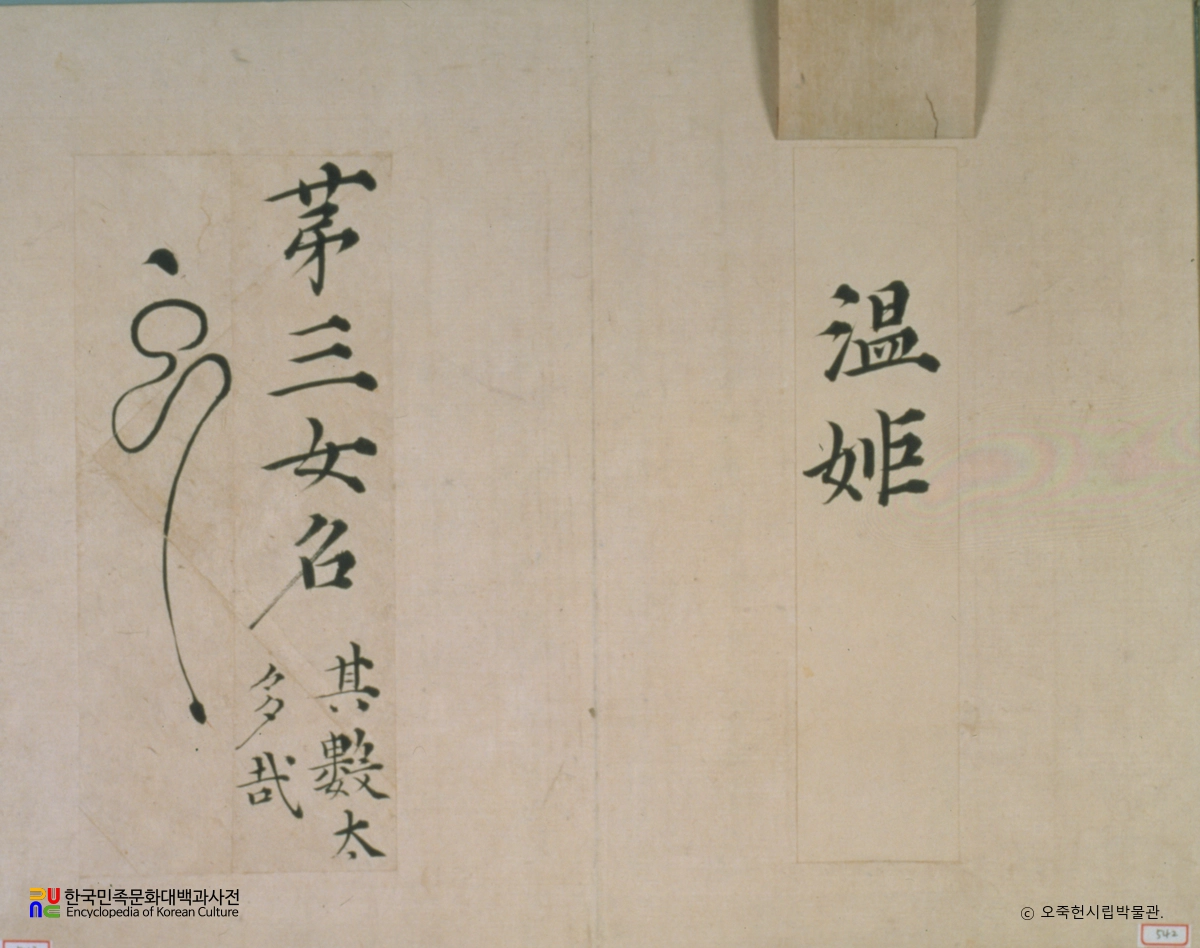 溫姬
第三女名
其數太
多哉
한국민족문화대백과사전
Encyclopedia of Korean Culture
ⓒ 오죽헌시립박물관.
542